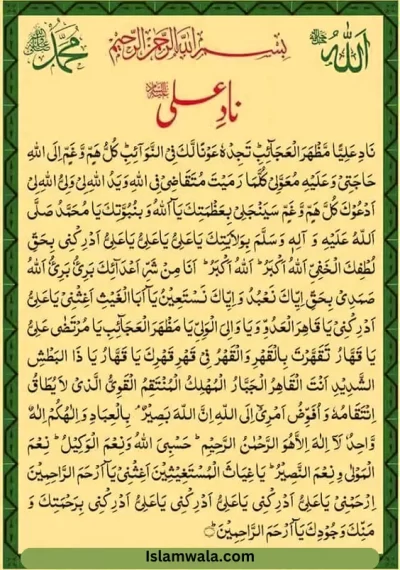 الله جل جلاله
بِسْمِ اللهِ الرَّحْمٰنِ الرَّحِيْمِ
مُحَمَّد
نادِ علی
نَادِ عَلِيًّا مَّظْهَرَ الْعَجَآئِبِ تَجِدْهُ عَوْنًا لَّكَ فِى النَّوَآئِبِ كُلُّ هَمٍّ وَّغَمٍّ اِلَى اللهِ
حَاجَتِىْ وَعَلَيْهِ مُعَوَّلِىْ كُلَّمَا رَمَيْتَ مُتَقَاضِىْ فِى اللهِ وَيَدُ اللهِ لِىْ وَلِىُّ اللهِ لِىْ
اَدْعُوْكَ كُلَّ هَمٍّ وَّغَمٍّ سَيَنْجَلِىْ بِعَظْمَتِكَ يَآ اَللهُ وَ بِنُبُوَّتِكَ يَا مُحَمَّدُ صَلَّى
اللهُ عَلَيْهِ وَ آلِهٖ وَسَلَّمَ بِوِلَايَتِكَ يَا عَلِىُّ يَا عَلِىُّ يَا عَلِىُّ اَدْرِكْنِىْ بِحَقِّ
لُطْفِكَ الْخَفِىِّ اَللهُ اَكْبَرُ اَللهُ اَكْبَرُ اَنَا مِنْ شَرِّ اَعْدَآئِكَ بَرِىْٓءٌ بَرِىْٓءٌ اَللهُ
صَمَدِىْ بِحَقِّ اِيَّاكَ نَعْبُدُ وَ اِيَّاكَ نَسْتَعِيْنُ يَآ اَبَا الْغَيْثِ اَغِثْنِىْ يَا عَلِىُّ
اَدْرِكْنِىْ يَا قَاهِرَ الْعَدُوِّ وَ يَا وَالِىَ الْوَلِىِّ يَا مَظْهَرَ الْعَجَآئِبِ يَا مُرْتَضٰى عَلِىُّ
يَا قَهَّارُ تَقَهَّرْتَ بِالْقَهْرِ وَالْقَهْرُ فِىْ قَهْرِ قَهْرِكَ يَا قَهَّارُ يَا ذَا الْبَطْشِ
الشَّدِيْدِ اَنْتَ الْقَاهِرُ الْجَبَّارُ الْمُهْلِكُ الْمُنْتَقِمُ الْقَوِىُّ الَّذِىْ لَا يُطَاقُ
اِنْتِقَامُهٗ وَ اُفَوِّضُ اَمْرِىْٓ اِلَى اللهِ اِنَّ اللهَ بَصِيْرٌ بِالْعِبَادِ وَ اِلٰهُكُمْ اِلٰهٌ
وَّاحِدٌ لَآ اِلٰهَ اِلَّا هُوَ الرَّحْمٰنُ الرَّحِيْمُ حَسْبِىَ اللهُ وَنِعْمَ الْوَكِيْلُ نِعْمَ
الْمَوْلٰى وَ نِعْمَ النَّصِيْرُ يَا غِيَاثَ الْمُسْتَغِيْثِيْنَ اَغِثْنِىْ يَآ اَرْحَمَ الرَّاحِمِيْنَ
اِرْحَمْنِىْ يَا عَلِىُّ اَدْرِكْنِىْ يَا عَلِىُّ اَدْرِكْنِىْ يَا عَلِىُّ اَدْرِكْنِىْ بِرَحْمَتِكَ وَ
مَنِّكَ وَجُوْدِكَ يَآ اَرْحَمَ الرَّاحِمِيْنَ
Islamwala.com